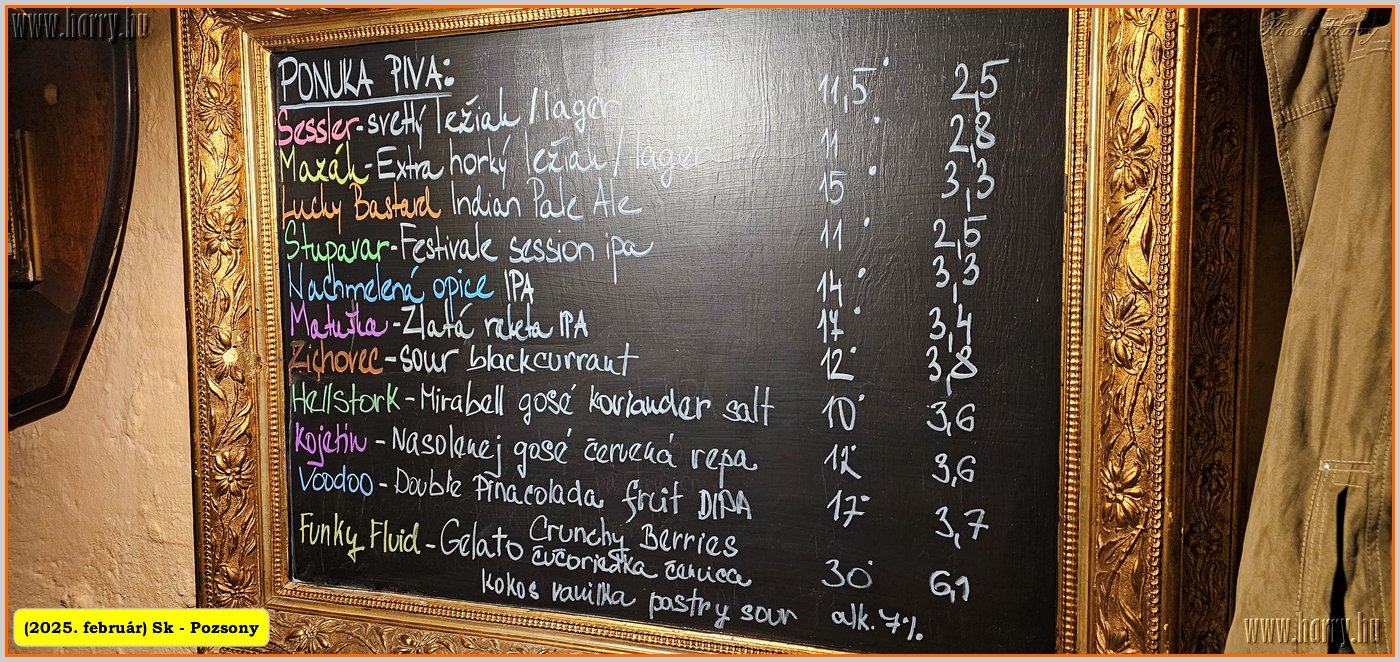 www.harry.hu
Photo: Harry
PONUKA PIVA:
Sessler - svetlý ležiak / lager 11,5° 2,5
Mazák - Extra horký ležiak / lager 11° 2,8
Lucky Bastard Indian Pale Ale 15° 3,3
Stupavar - Festivale session ipa 11° 2,5
Nachmelená opice IPA 14° 3,3
Matuška - Zlatá raketa IPA 17° 3,4
Zichovec - sour blackcurrant 12° 3,8
Hellstork - Mirabell gosé koriander salt 10° 3,6
Kojetín - Nasolenej gosé červená repa 12° 3,6
Voodoo - Double Pinacolada fruit DIPA 17° 3,7
Funky Fluid - Gelato Crunchy Berries 30° 6,1
čučoriedka černica
kokos vanilka pastry sour alk. 7%
(2025. február) Sk - Pozsony
www.harry.hu